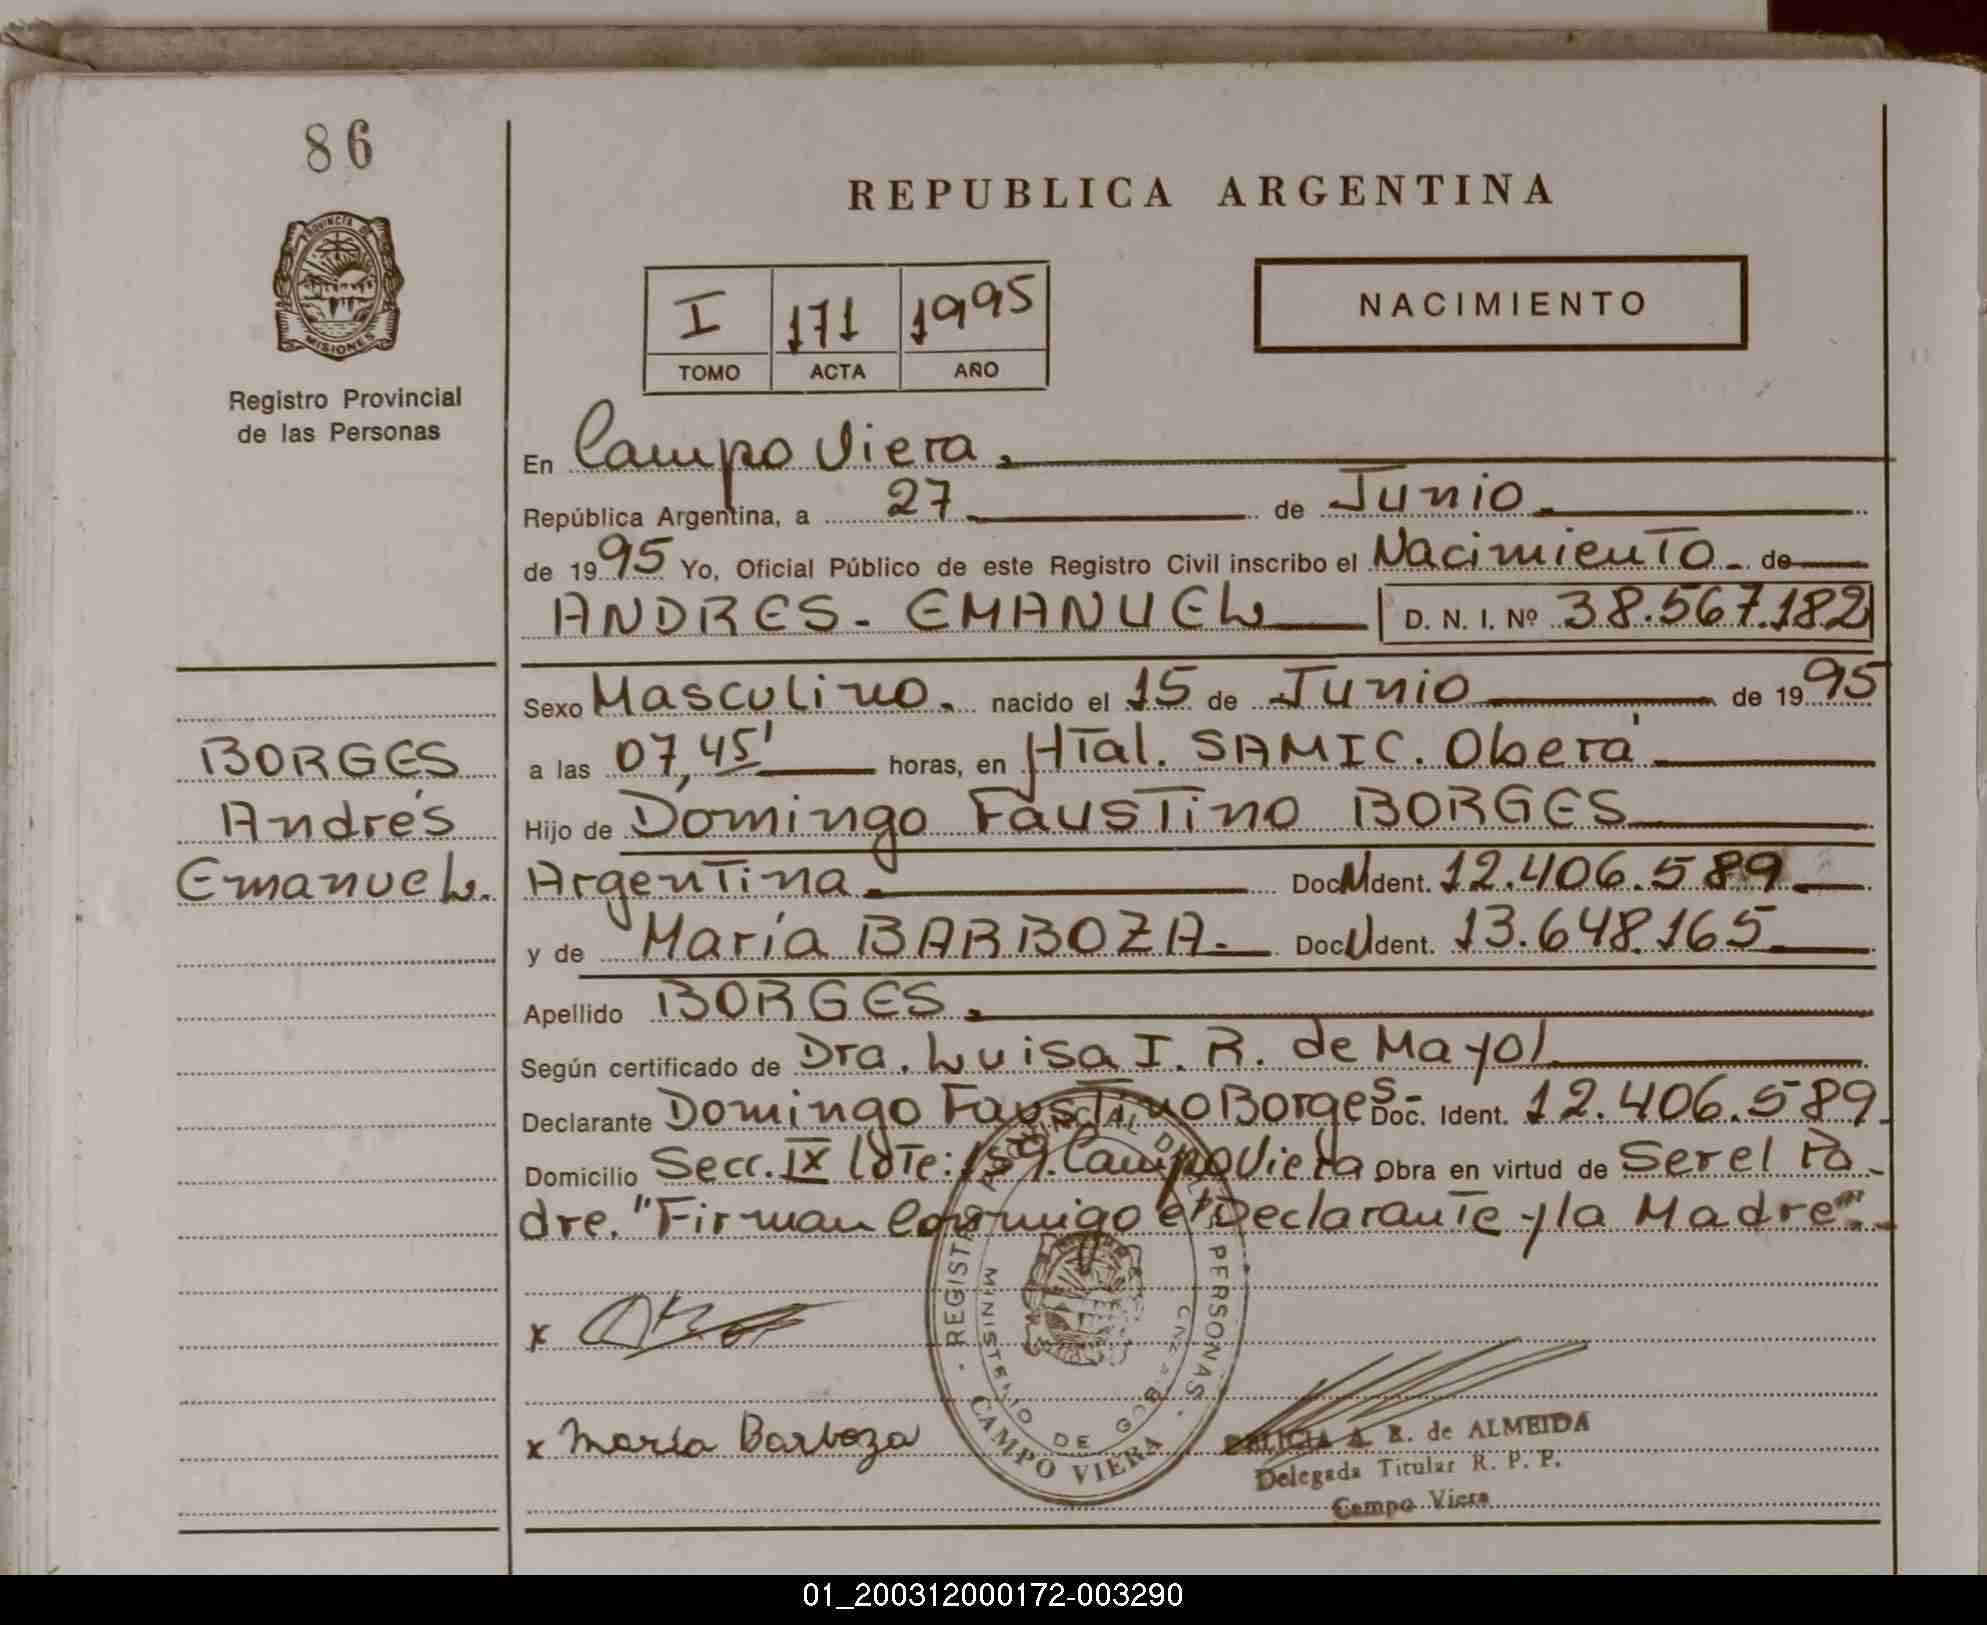 86
PROVINCIA DE
MISIONES
Registro Provincial
de las Personas
BORGES
Andrés
Emanuel.
REPUBLICA ARGENTINA
I 171 1995
TOMO ACTA AÑO
NACIMIENTO
En Campo Viera.
República Argentina, a 27 de Junio
de 1995 Yo, Oficial Público de este Registro Civil inscribo el Nacimiento de
ANDRES - EMANUEL D. N. I. Nº 38.567.182
Sexo Masculino. nacido el 15 de Junio de 1995
a las 07,45' horas, en HTal. SAMIC. Oberá
Hijo de Domingo Faustino BORGES
Argentina Doc. Ident. 12.406.589
y de María BARBOZA. Doc. Ident. 13.648.165
Apellido BORGES.
Según certificado de Dra. Luisa I. R. de Mayol
Declarante Domingo Faustino Borges Doc. Ident. 12.406.589.
Domicilio Secc. IX lote: 159. Campo Viera Obra en virtud de Ser el Pa-
dre. "Firman Conmigo el Declarante y la Madre".
x
x María Barboza
REGISTRO PROVINCIAL DE LAS PERSONAS
MINISTERIO DE GOB
CAMPO VIERA
DELICIA A. R. de ALMEIDA
Delegada Titular R. P. P.
Campo Viera
01_200312000172-003290